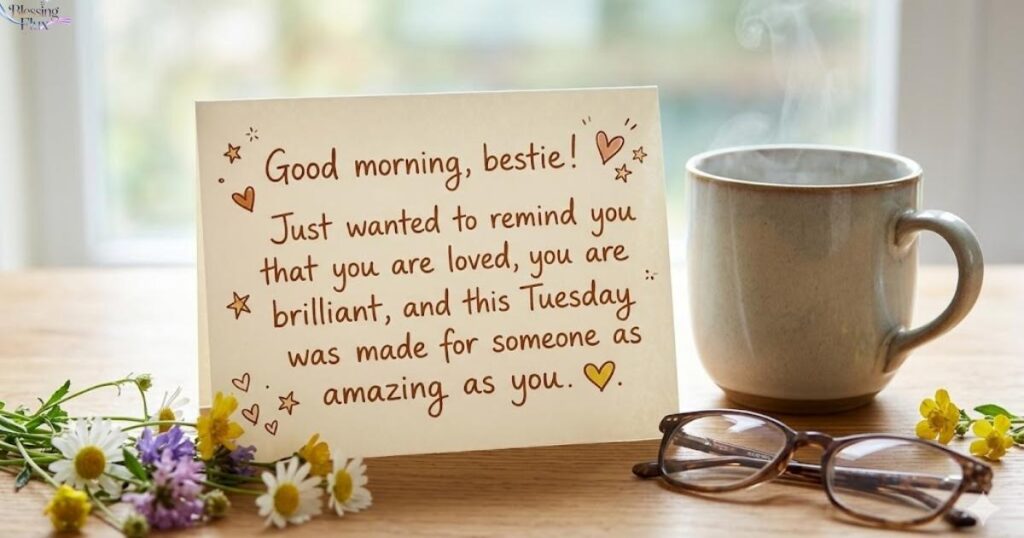 Blessing
Flux
Good morning, bestie!
Just wanted to remind you
that you are loved, you are
brilliant, and this Tuesday
was made for someone as
amazing as you. 💛.